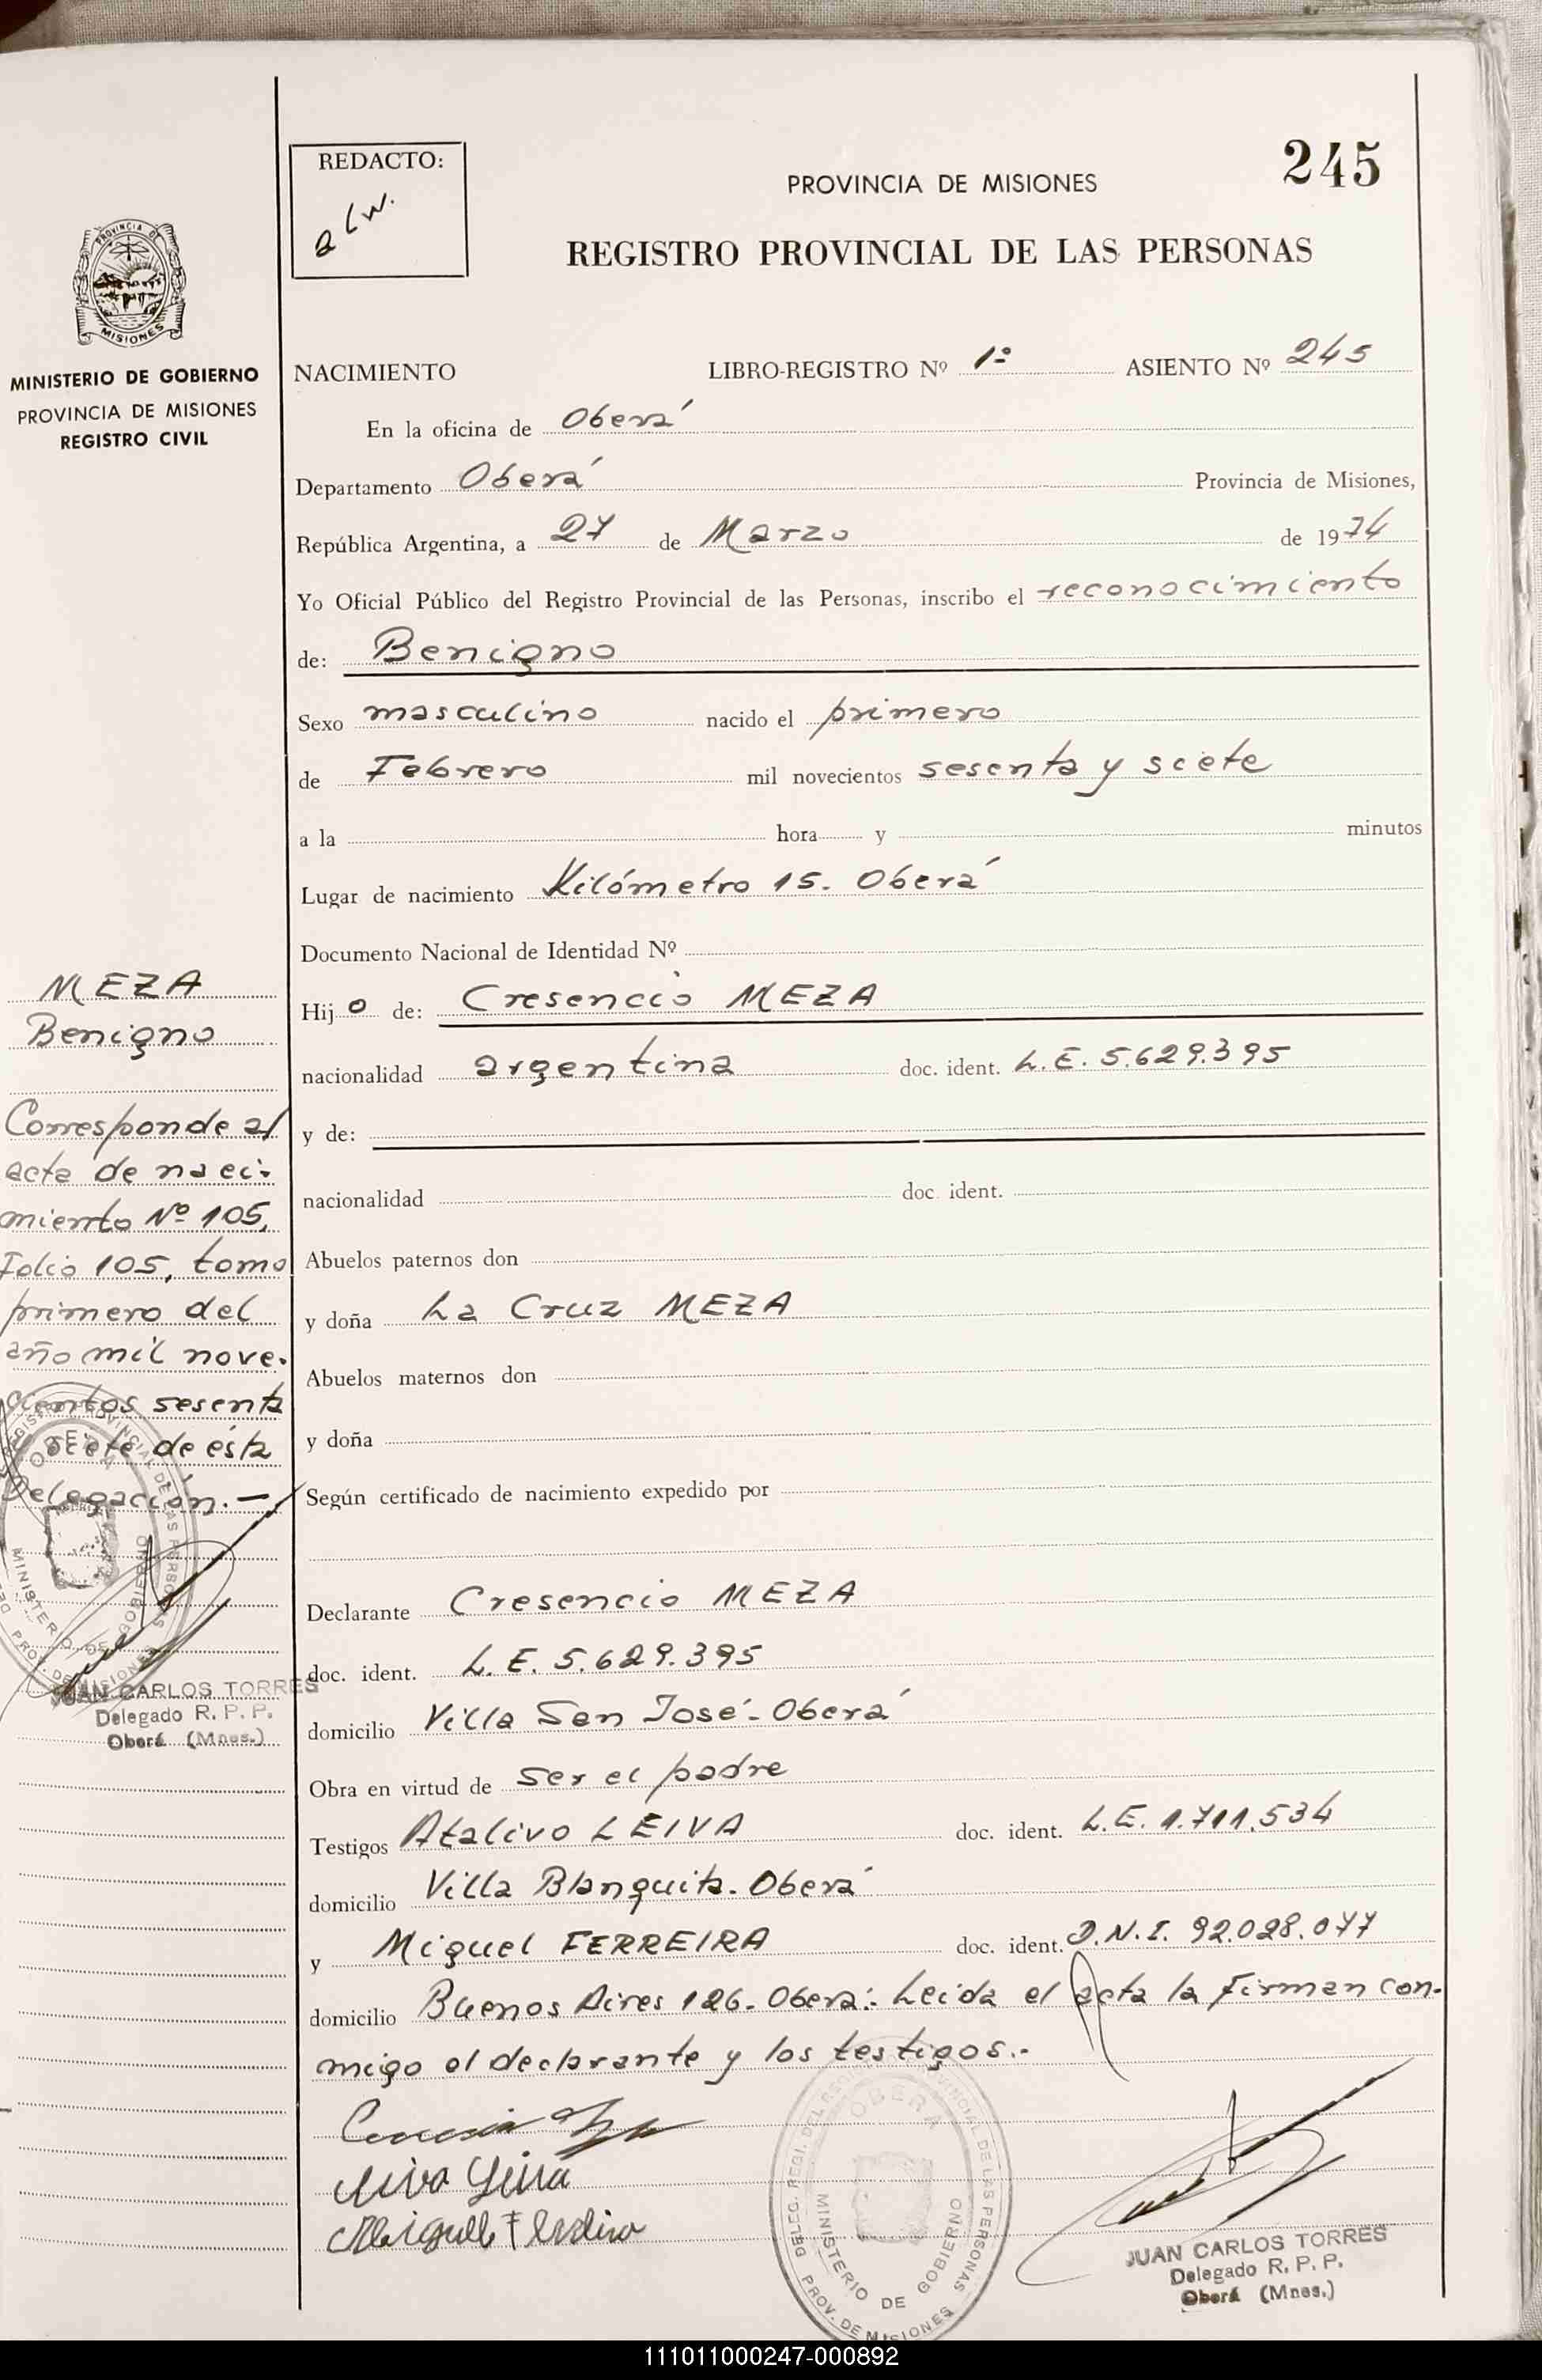 245
REDACTO:
PROVINCIA DE MISIONES
REGISTRO PROVINCIAL DE LAS PERSONAS
PROVINCIA DE
MISIONES
MINISTERIO DE GOBIERNO
PROVINCIA DE MISIONES
REGISTRO CIVIL
NACIMIENTO LIBRO-REGISTRO Nº 1º ASIENTO Nº 245
En la oficina de Oberá
Departamento Oberá Provincia de Misiones,
República Argentina, a 27 de Marzo de 1974
Yo Oficial Público del Registro Provincial de las Personas, inscribo el reconocimiento
de: Benigno
Sexo masculino nacido el primero
de Febrero mil novecientos sesenta y siete
a la hora y minutos
Lugar de nacimiento Kilómetro 15. Oberá
Documento Nacional de Identidad Nº
Hijo de: Cresencio MEZA
nacionalidad argentina doc. ident. L.E. 5.629.395
y de:
nacionalidad doc ident.
Abuelos paternos don
y doña La Cruz MEZA
Abuelos maternos don
y doña
Según certificado de nacimiento expedido por
Declarante Cresencio MEZA
doc. ident. L.E. 5.629.395
domicilio Villa San José-Oberá
Obra en virtud de ser el padre
Testigos Atalivo LEIVA doc. ident. L.E. 1.711.534
domicilio Villa Blanquita. Oberá
y Miguel FERREIRA doc. ident. D.N.I. 92.028.077
domicilio Buenos Aires 126. Oberá:. Leida el acta la firman con-
migo el declarante y los testigos.-
MEZA
Benigno
Corresponde al
acta de naci-
miento Nº 105,
Folio 105, tomo
primero del
año mil nove-
cientos sesenta
y siete de ésta
Delegación.-
JUAN CARLOS TORRES
Delegado R. P. P.
Oberá (Mnes.)
OBERA
MINISTERIO DE GOBIERNO
PROV. DE MISIONES
JUAN CARLOS TORRES
Delegado R. P. P.
Oberá (Mnes.)
111011000247-000892